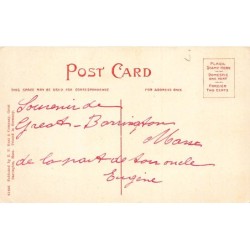 POST CARD
THIS SPACE MAY BE USED FOR CORRESPONDENCE
FOR ADDRESS ONLY
PLACE
STAMP HERE
DOMESTIC
ONE CENT
FOREIGN
TWO CENTS
Souvenir de
Great-Barrington
Mass
de la part de ton oncle
Eugène